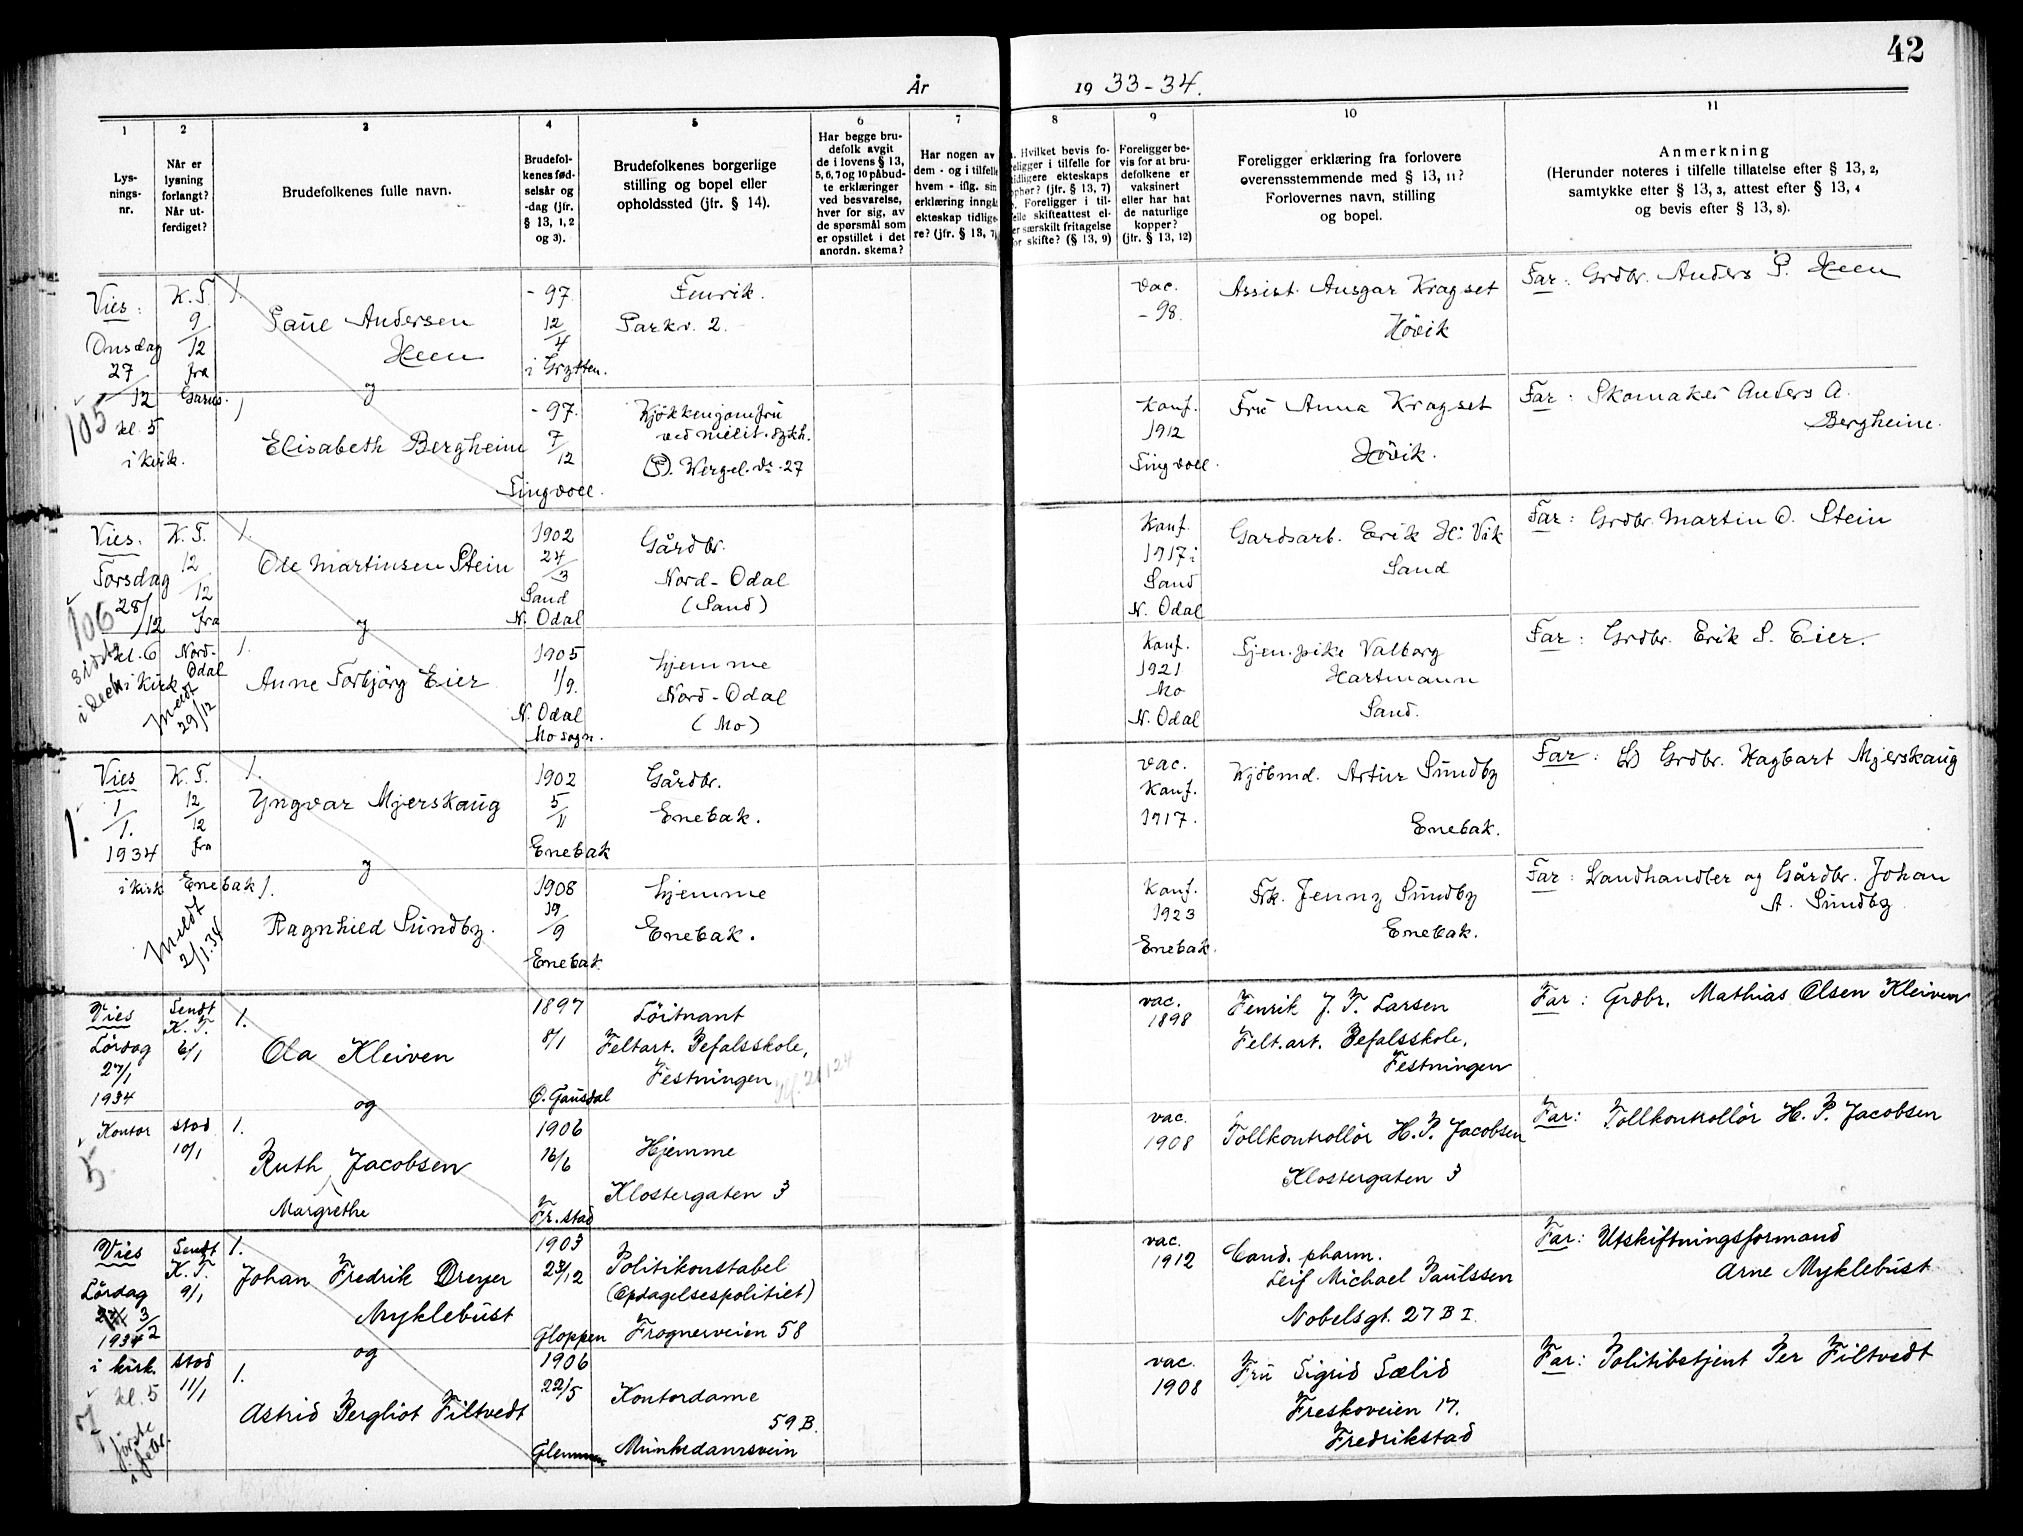 42
År 1933-34.
1 2 3 4 5 6 7 8 9 10 11
Lys-
nings-
nr.
Når er
lysning
forlangt?
Når ut-
ferdiget?
Brudefolkenes fulle navn.
Brudefol-
kenes fød-
selsår og
-dag (jfr.
§ 13, 1, 2
og 3).
Brudefolkenes borgerlige
stilling og bopel eller
opholdssted (jfr. § 14).
Har begge bru-
defolk avgit
de i lovens § 13,
5, 6, 7 og 10 påbud-
te erklæringer
ved besvarelse,
hver for sig, av
de spørsmål som
er opstillet i det
anordn. skema?
Har nogen av
dem - og i tilfelle
hvem - iflg. sin
erklæring inngå
ekteskap tidlige-
re? (jfr. § 13, 7)
Hvilket bevis fo-
religger i tilfelle for
tidligere ekteskaps
ophør? (jfr. § 13, 7)
Foreligger i til-
felle skifteattest el-
er særskilt fritagelse
for skifte? (§ 13, 9)
Foreligger be-
vis for at bru-
defolkene er
vaksinert
eller har hat
de naturlige
kopper?
(jfr. § 13, 12)
Foreligger erklæring fra forlovere
overensstemmende med § 13, 11?
Forlovernes navn, stilling
og bopel.
Anmerkning
(Herunder noteres i tilfelle tillatelse efter § 13, 2,
samtykke efter § 13, 3, attest efter § 13, 4
og bevis efter § 13, 8).
Vies:
Onsdag
27/12
kl. 5
i kirk.
105
K.T.
9/12
fra
Garns.
1.
Paul Andersen
Heen
og
- 97.
12/4
i Grytten.
Fenrik.
Parkv. 2.
vac.
- 98.
Assist. Ansgar Kragset
Høvik
Far: Grdbr. Anders P. Heen
1
Elisabeth Bergheim
- 97.
7/12
Tingvoll.
Kjøkkenjomfru
ved milit. sykh.
(P). Wergel. v. 27
Konf.
1912
Tingvoll.
Fru Anna Kragset
Høvik.
Far: Skomaker Anders A.
Bergheim.
Vies.
Torsdag
28/12
kl. 6
i kirk
106
K.T.
12/12
fra
Nord-
Odal
Meldt
29/12
1.
Ole Martinsen Stein
og
1902
24/3
Sand
N. Odal
Gårdbr.
Nord-Odal
(Sand)
Konf.
1917 i
Sand
N. Odal
Gardsarb. Erik H. Vik
Sand
Far: Grdbr. Martin O. Stein
1.
Anne Torbjörg Eier
1905
1/9.
N. Odal
Mo sogn.
hjemme
Nord-Odal
(Mo)
Konf.
1921
Mo
N. Odal
Tjen.pike Valborg
Hartmann
Sand.
Far: Grdbr. Erik S. Eier.
Vies
1/1.
1934
i kirk
1.
K.T.
12/12
fra
Enebak
Meldt
2/1.34
1.
Yngvar Mjerskaug
og
1902
5/11
Enebak
Gårdbr.
Enebak.
vac.
Konf.
1917.
Kjöbmd. Artur Sundby
Enebak.
Far: Grdbr. Hagbart Mjerskaug
1.
Ragnhild Sundby.
1908
19/9
Enebak
hjemme
Enebak.
Konf.
1923
Enebak.
Frk. Jenny Sundby
Enebak.
Far: Landhandler og Gårdbr. Johan
A. Sundby
Vies
Lördag
27/1
1934
Kontor
5.
Sendt
K.T.
6/1
stod
10/1
1.
Ola Kleiven
og
1897
8/1
Ø. Gausdal
Löitnant
Feltart. Befalsskole,
Festningen
vac.
1898
Fenrik J. T. Larsen
Felt.art. Befalsskole,
Festningen
Far: Grdbr. Mathias Olsen Kleiven
1.
Ruth Jacobsen
Margrethe
1906
16/6
Fr.stad
Hjemme
Klostergaten 3
vac.
1908
Tollkontrollör H. P. Jacobsen
Klostergaten 3
Far: Tollkontrollör H. P. Jacobsen
Vies
Lördag
3/2
1934
i kirk.
kl. 5
første
i febr.
Sendt
K.T.
9/1
stod
11/1
1.
Johan Fredrik Dreyer
Myklebust
og
1903
23/12
Gloppen
Politikonstabel
(Opdagelsespolitiet)
Frognerveien 58
vac.
1912
Cand. pharm.
Leif Michael Paulssen
Nobelsgt. 27 B I.
Far: Utskiftningsformand
Arne Myklebust
1.
Astrid Bergliot Filtvedt
1906
22/5
Glemmen
Kontordame
59 B.
Munkedamsvein
vac.
1908
Fru Sigrid Sælid
Freskoveien 17.
Fredrikstad
Far: Politibetjent Per Filtvedt